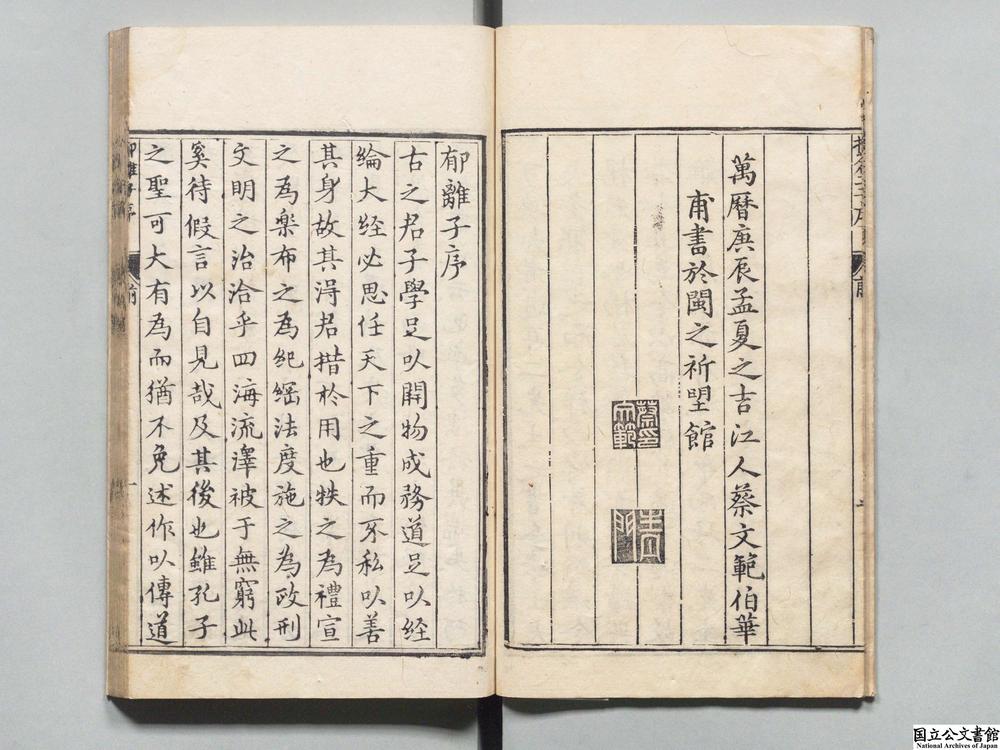 萬暦庚辰孟夏之吉江人蔡文範伯華
甫書於閩之祈朢館
蔡印
文範
青
門
前
郁離子序
古之君子學足以開物成務道足以経
綸大経必思任天下之重而不私以善
其身故其淂君措於用也秩之為禮宣
之為樂布之為紀綱法度施之為政刑
文明之治洽乎四海流澤被于無窮此
奚待假言以自見哉及其後也雖孔子
之聖可大有為而猶不免述作以傳道
郁離子序
前
一
国立公文書館
National Archives of Japan